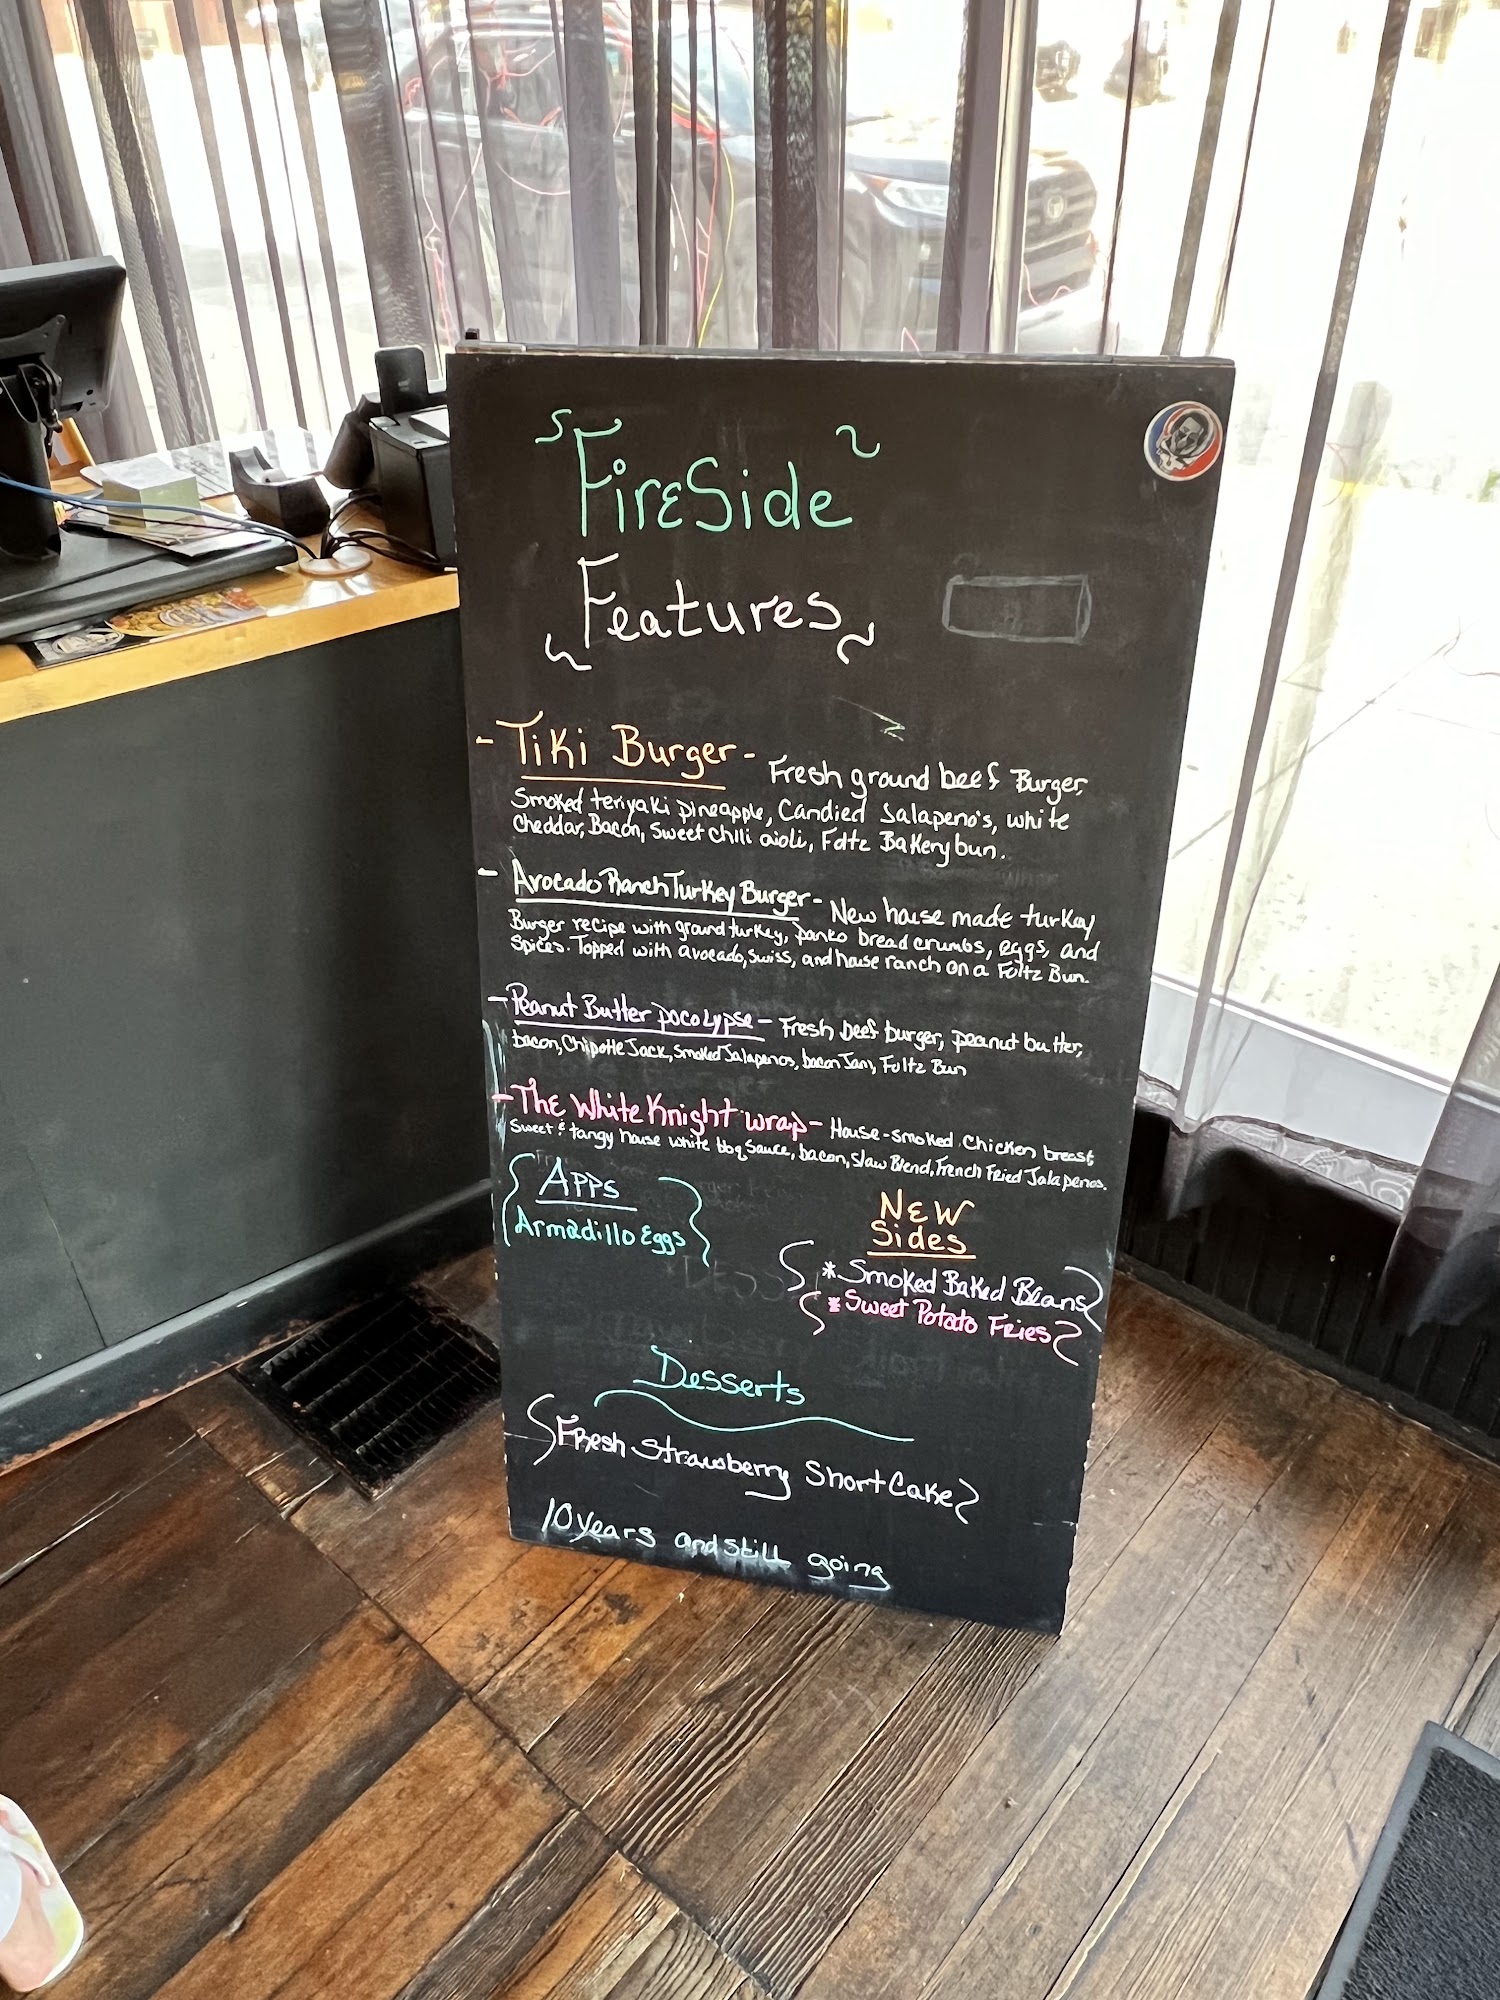 FireSide
Features
- Tiki Burger - Fresh ground beef Burger,
Smoked teriyaki pineapple, Candied Jalapeno's, white
Cheddar, Bacon, Sweet chili aioli, Foltz Bakery bun.
- Avocado Ranch Turkey Burger - New house made turkey
Burger recipe with ground turkey, panko bread crumbs, eggs, and
Spices. Topped with avocado, swiss, and house ranch on a Foltz Bun.
- Peanut Butter pocolypse - Fresh beef burger, peanut butter,
bacon, Chipotle Jack, Smoked Jalapenos, bacon Jam, Fultz Bun
- The White Knight wrap - House-smoked Chicken breast,
Sweet & tangy house white bbq Sauce, bacon, Slaw Blend, French Fried Jalapenos.
Apps
Armadillo Eggs
New
Sides
* Smoked Baked Beans
* Sweet Potato Fries
Desserts
Fresh Strawberry ShortCake
10 years and still going